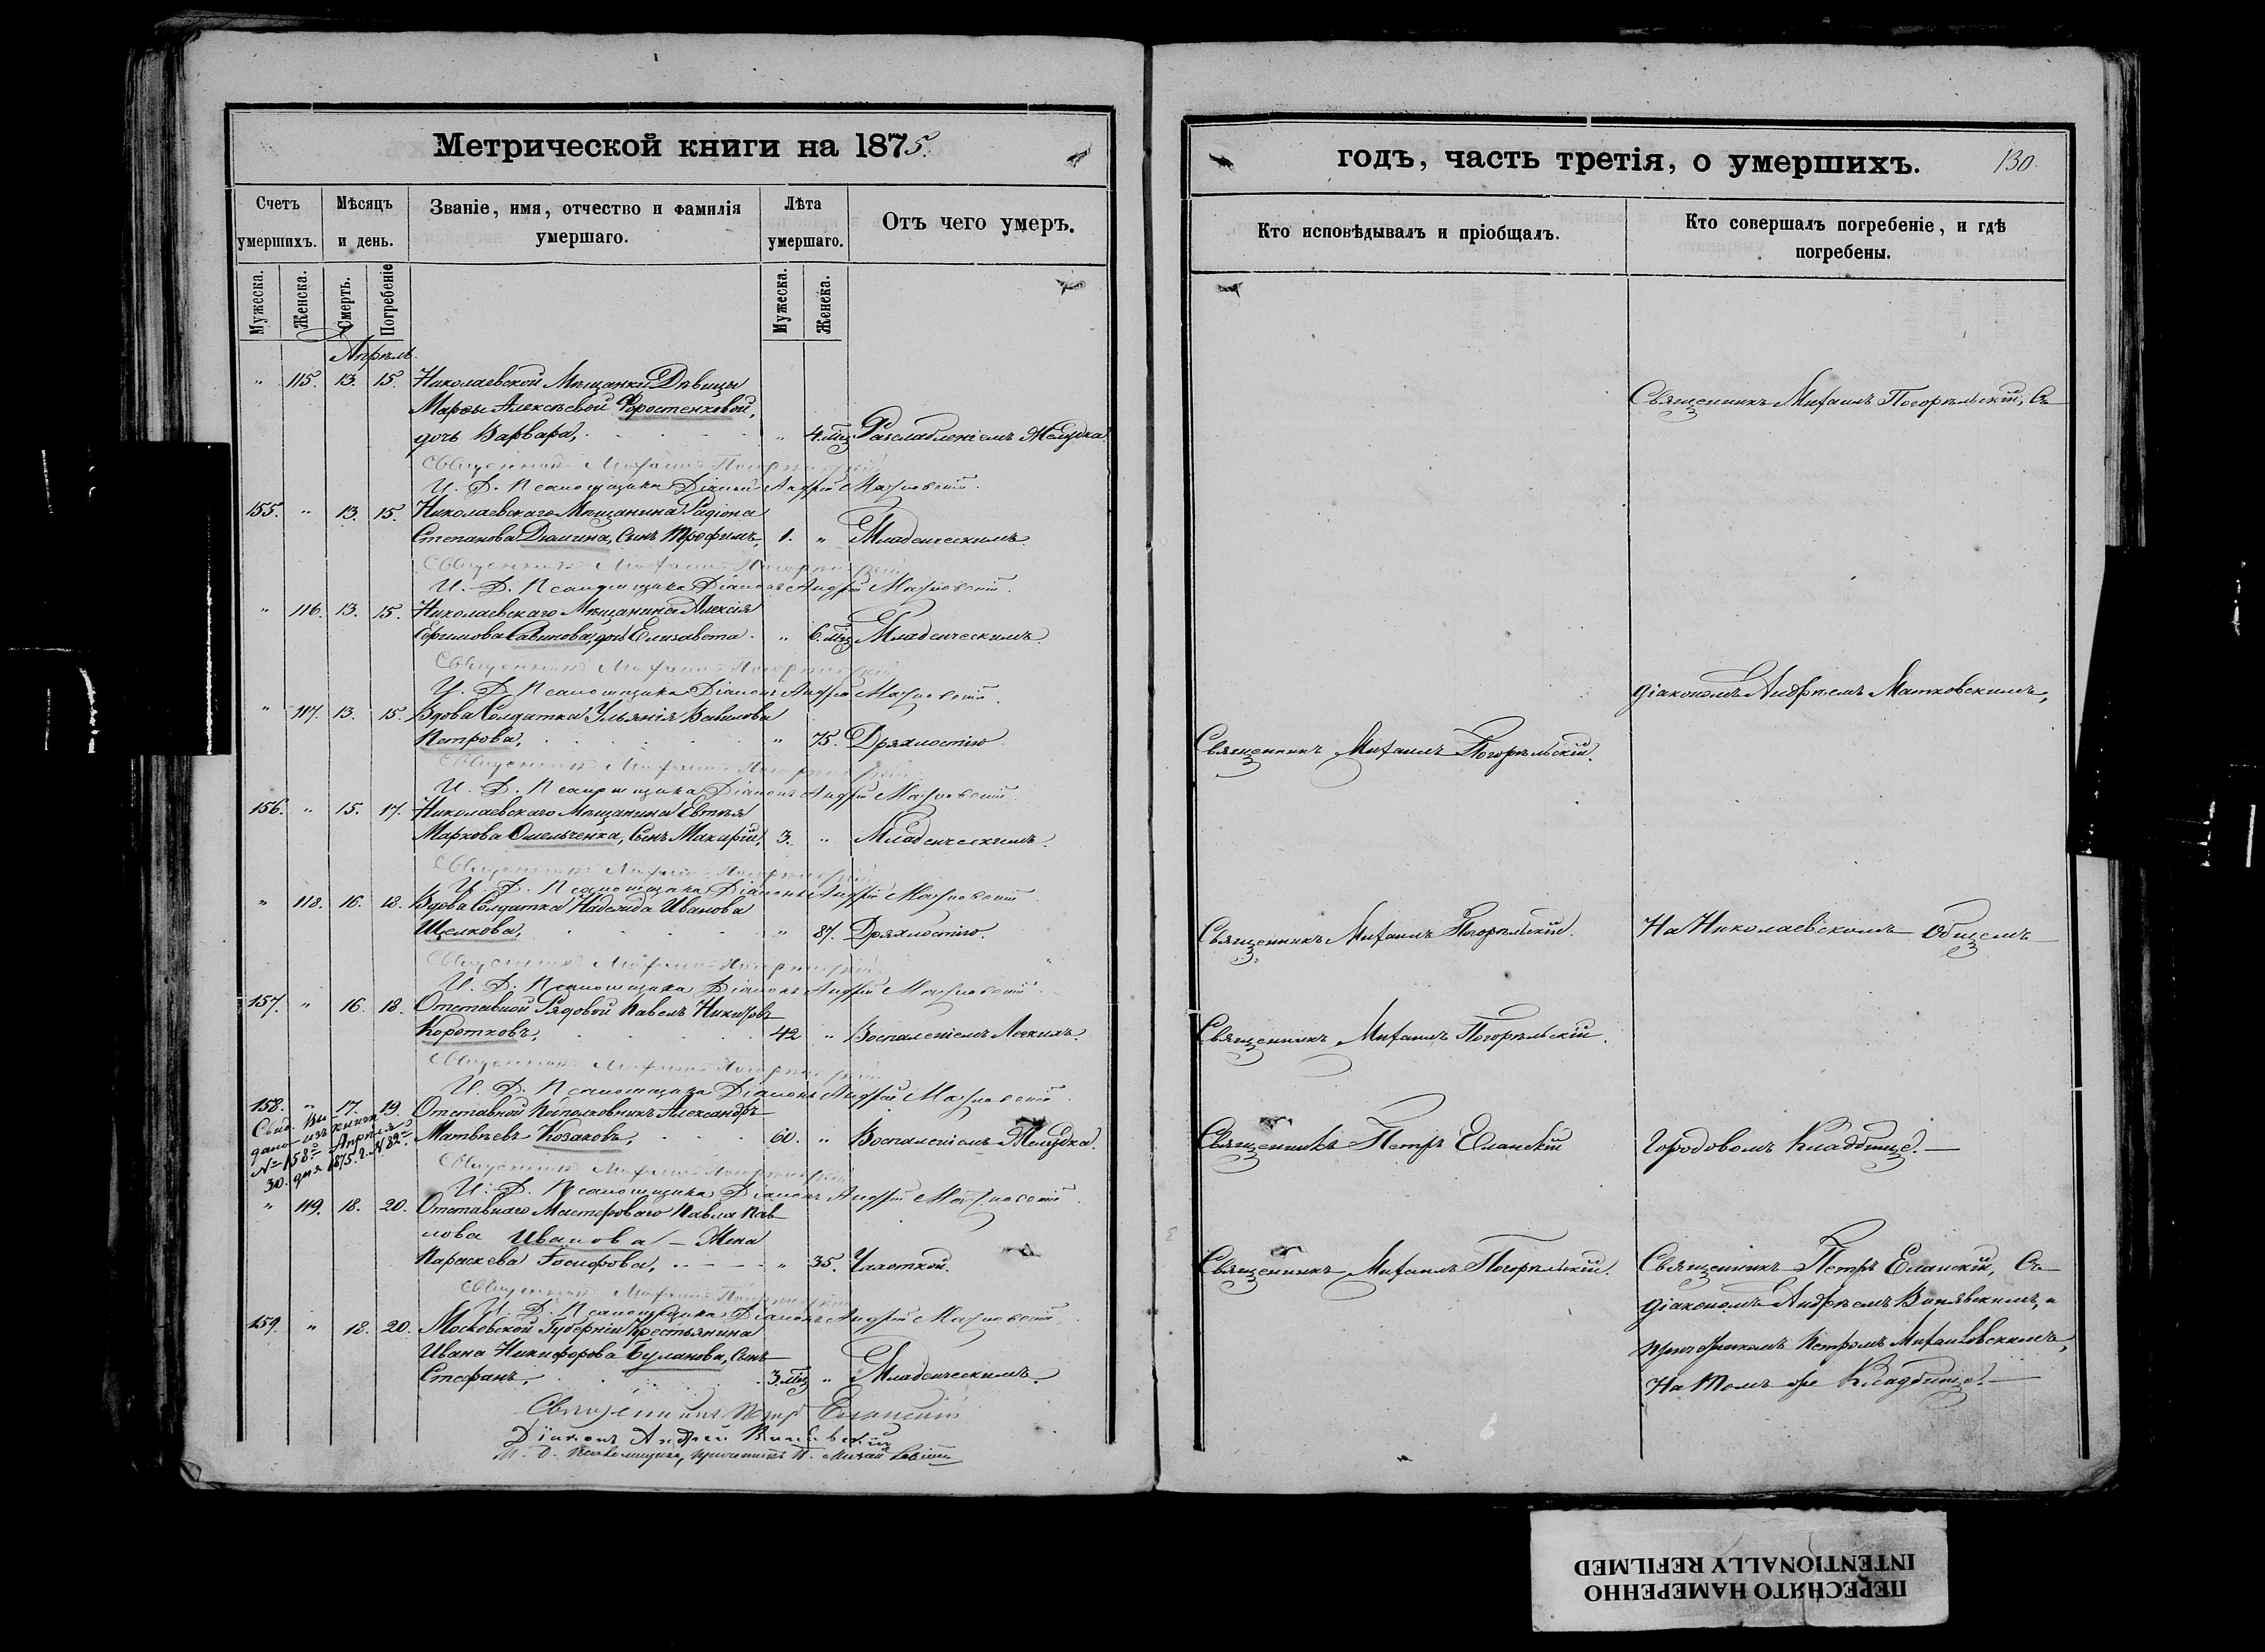 Метрической книги на 1875.
Счетъ умершихъ.
Мѣсяцъ и день.
Званіе, имя, отчество и фамилія умершаго.
Лѣта умершаго.
Отъ чего умеръ.
Мужеска. Женска. Смерть. Погребеніе Мужеска. Женска.
Апрѣль
" 115. 13. 15. Николаевской Мѣщанки Дѣвицы
Марѳы Алексѣевой Форостенковой,
дочь Варвара, " 4. мѣс Разслабленіемъ Желудка.
Священникъ Михаилъ Погорѣльскій
И. Д. Псаломщика Діаконъ Андрей Матковскій.
155. " 13. 15. Николаевскаго Мѣщанина Родіона
Степанова Дюмина, сынъ Трофимъ, 1. " Младенческимъ.
Священникъ Михаилъ Погорѣльскій
И. Д. Псаломщика Діаконъ Андрей Матковскій.
" 116. 13. 15. Николаевскаго Мѣщанина Алексія
Ефимова Савинова, дочь Елизавета " 6. мѣс Младенческимъ.
Священникъ Михаилъ Погорѣльскій
И. Д. Псаломщика Діаконъ Андрей Матковскій.
" 117. 13. 15. Вдова Солдатка Ульянія Вавилова
Петрова, " 75. Дряхлостію
Священникъ Михаилъ Погорѣльскій
И. Д. Псаломщика Діаконъ Андрей Матковскій.
156. " 15. 17. Николаевскаго Мѣщанина Евтѣя
Маркова Омельченка, сынъ Макарій, 3. " Младенческимъ.
Священникъ Михаилъ Погорѣльскій
И. Д. Псаломщика Діаконъ Андрей Матковскій
" 118. 16. 18. Вдова Солдатка Надежда Иванова
Щелкова, " 87. Дряхлостію.
Священникъ Михаилъ Погорѣльскій
И. Д. Псаломщика Діаконъ Андрей Матковскій
157. " 16. 18. Отставной Рядовой Павелъ
Коротковъ, 42 " Воспаленіемъ Легкихъ.
Священникъ Михаилъ Погорѣльскій
И. Д. Псаломщика Діаконъ Андрей Матковскій
158. " 17. 19. Отставной Подполковникъ Александръ
Матвѣевъ Козаковъ, 60. " Воспаленіемъ Желудка.
Свид. вы-
дано изъ книги
№ 158го Апрѣля
30. дня 1875. г. № 82й.
Священникъ Михаилъ Погорѣльскій
И. Д. Псаломщика Діаконъ Андрей Матковскій
" 119. 18. 20. Отставнаго Мастероваго Павла Пав-
лова Иванова – Жена
Параскева Іосифова, " 35. Чахоткой.
Священникъ Михаилъ Погорѣльскій
И. Д. Псаломщика Діаконъ Андрей Матковскій
159. " 18. 20. Московской Губерніи Крестьянина
Ивана Никифорова Буланова, сынъ
Стефанъ, 3. мѣс " Младенческимъ.
Священникъ Петръ Еланскій
Діаконъ Андрей
И. Д. Псаломщика, причетникъ П.
годъ, часть третія, о умершихъ. 130.
Кто исповѣдывалъ и пріобщалъ.
Кто совершалъ погребеніе, и гдѣ погребены.
Священникъ Михаилъ Погорѣльскій, Съ
діакономъ Андреемъ Матковскимъ,
Священникъ Михаилъ Погорѣльскій.
Священникъ Михаилъ Погорѣльскій. На Николаевскомъ Общемъ
Священникъ Михаилъ Погорѣльскій.
Священникъ Петръ Еланскій Городовомъ Кладбищѣ. –
Священникъ Михаилъ Погорѣльскій. Священникъ Петръ Еланскій, Съ
діакономъ Андреемъ и
причетникомъ Петромъ
На томъ же Кладбищѣ. –
ПЕРЕСНЯТО НАМЕРЕННО
INTENTIONALLY REFILMED